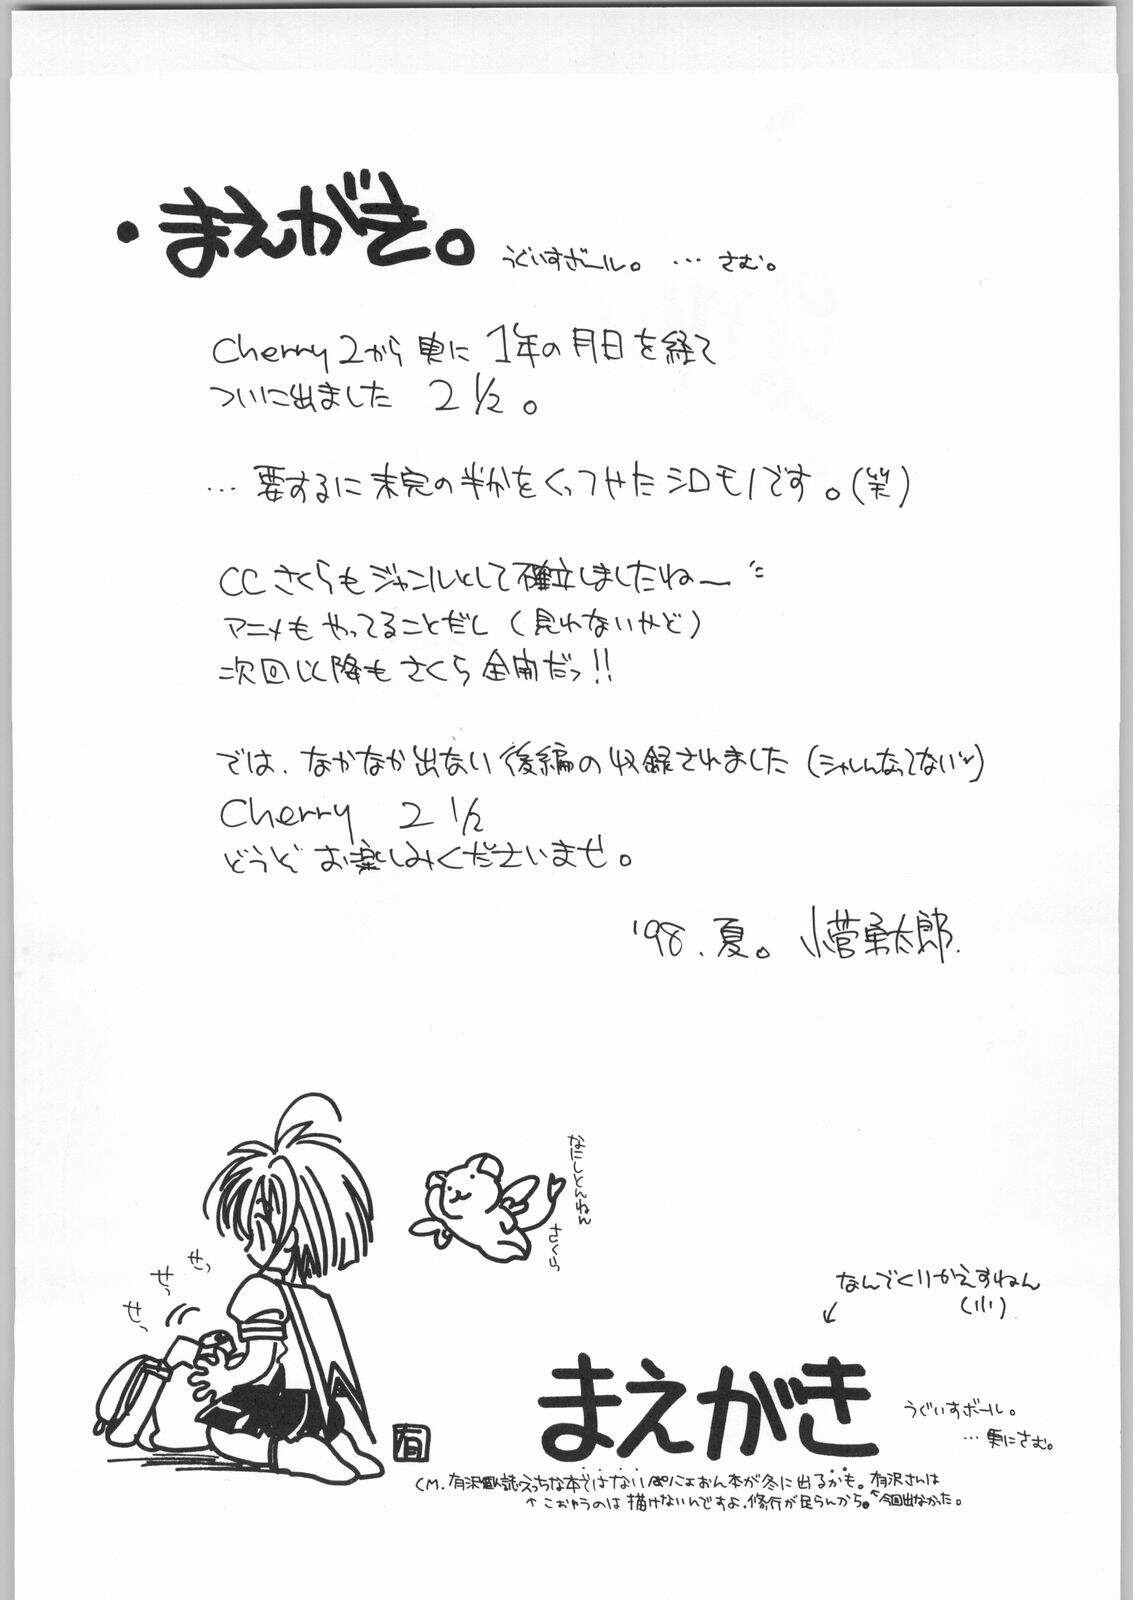 ・まえがき。
うぐいすボール。 … さむ。
Cherry2から更に1年の月日を経て
ついに出ました 2 1/2。
… 要するに未完の半かをくっつやたシロモノです。(笑)
CCさくらもジャンルとして確立しましたねー
アニメもやってることだし(見れないやど)
次回以降もさくら全開だっ!!
では、なかなか出ない後編の収録されました(シャレんなってない)
Cherry 2 1/2
どうぞお楽しみくださいませ。
'98.夏。 小菅勇太郎.
なにしとんねん
さくら
せっ
せっ
せっ
なんでくりかえすねん
(小)
まえがき
うぐいすボール。
… 更にさむ。
有
CM.有沢個人誌,えっちな本ではないぱにょおん本が冬に出るかも。有沢さんは
↑こおゆうのは描けないんですよ.修行が足らんから。 今回出なかった。